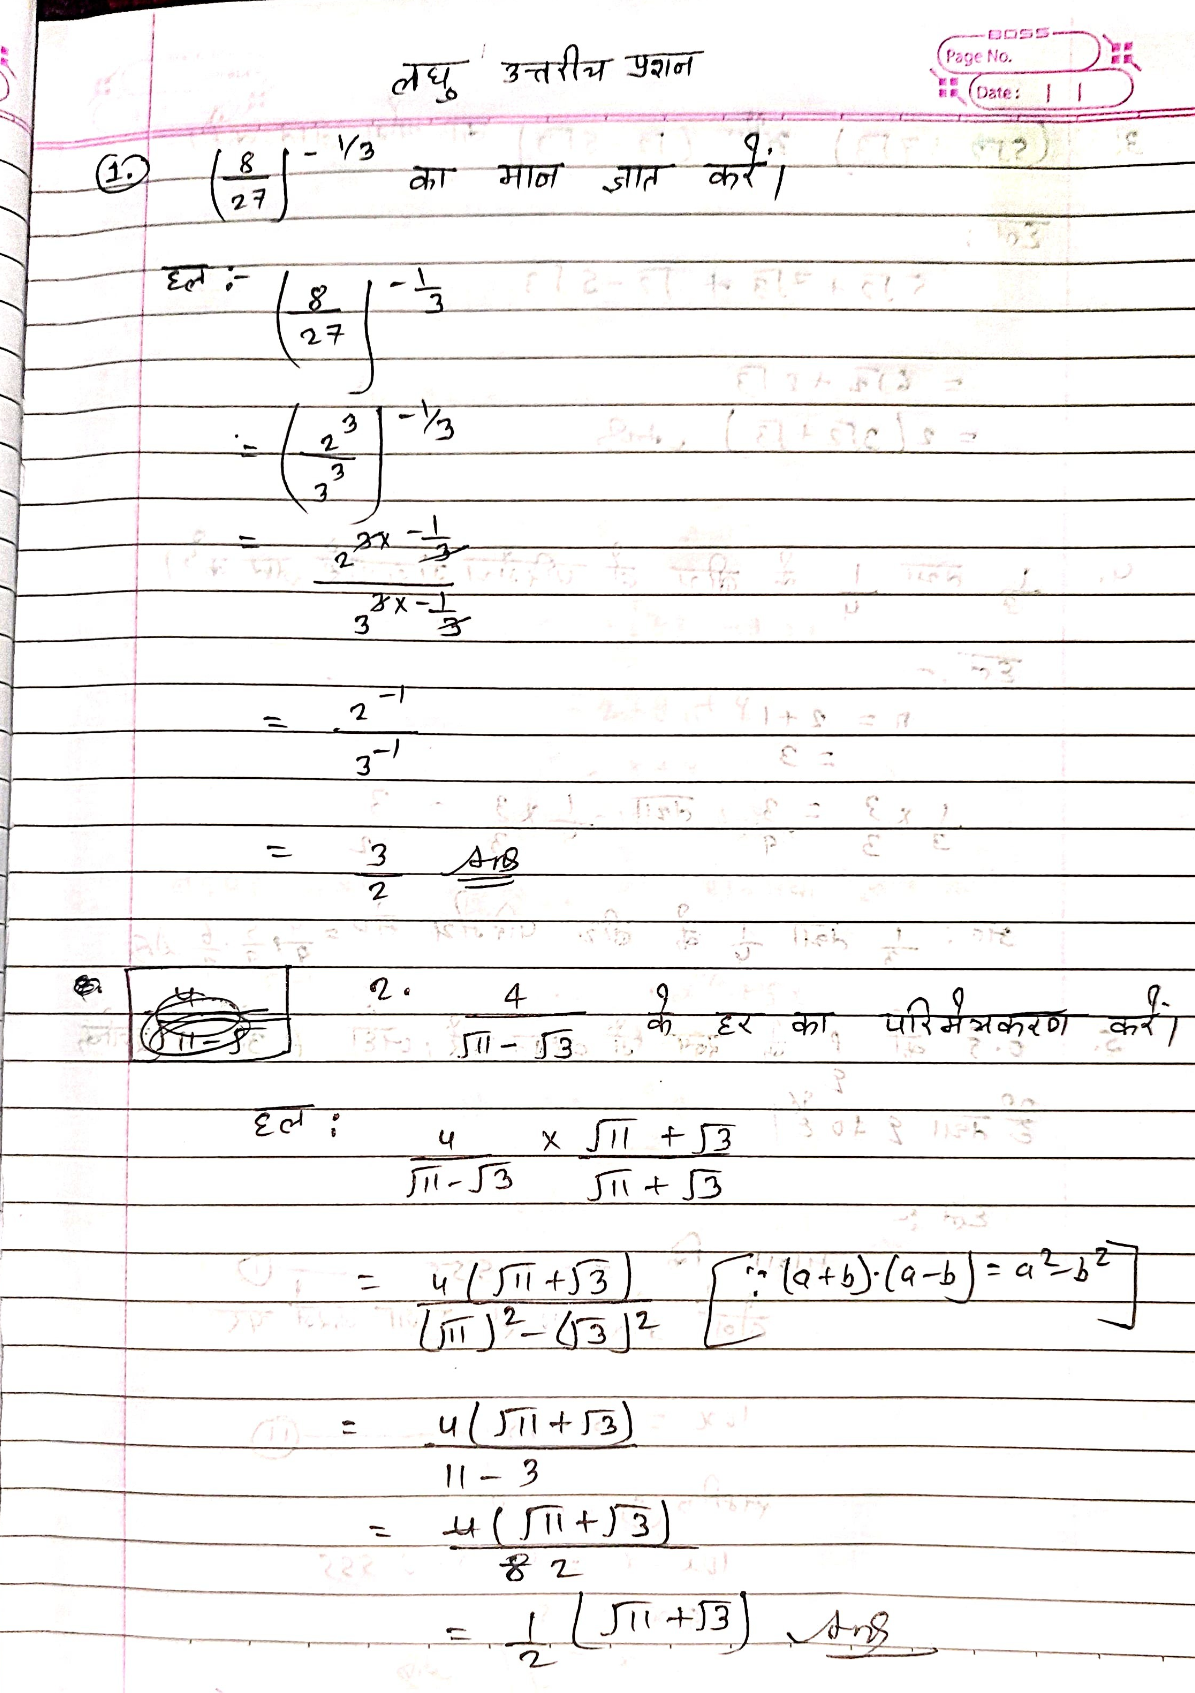 BOSS
Page No.
Date:
लघु उत्तरीय प्रशन
1. (8/27)^-1/3 का मान ज्ञात करें।
हल :- (8/27)^-1/3
= (2^3/3^3)^-1/3
= 2^(3x-1/3) / 3^(3x-1/3)
= 2^-1 / 3^-1
= 3/2 Ans
2. 4/(√11-√3) के हर का परिमेयकरण करें।
हल : 4/(√11-√3) x (√11+√3)/(√11+√3)
= 4(√11+√3) / (√11)^2-(√3)^2 [∵ (a+b)·(a-b) = a^2-b^2]
= 4(√11+√3) / 11-3
= 4(√11+√3) / 8 2
= 1/2 (√11+√3) Ans